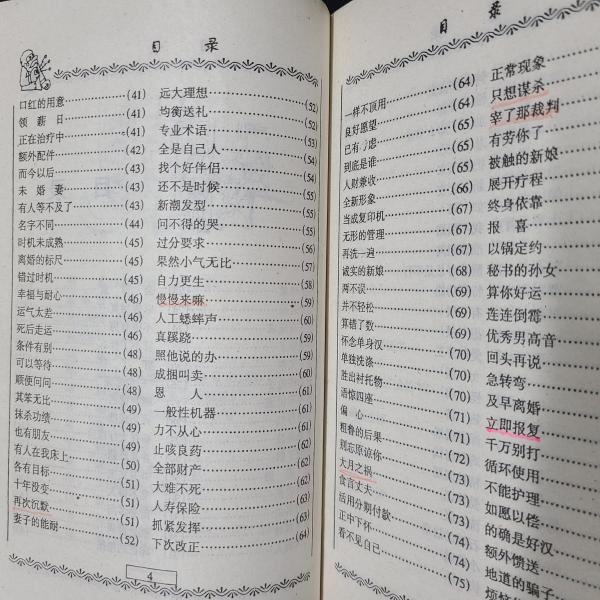 目 录
口红的用意…………(41)
领 薪 日…………(41)
正在治疗中…………(41)
额外配件…………(42)
而今以后…………(43)
未 婚 妻…………(43)
有人等不及了…………(43)
名字不同…………(44)
时机未成熟…………(45)
离婚的标尺…………(44)
错过时机…………(45)
幸福与耐心…………(46)
运气太差…………(46)
死后走运…………(46)
条件有别…………(48)
可以等待…………(48)
顺便问问…………(48)
其笨无比…………(49)
抹杀功绩…………(49)
也有朋友…………(49)
有人在我床上…………(50)
各有目标…………(51)
十年没变…………(51)
再次沉默…………(51)
妻子的能耐…………(52)
远大理想…………(52)
均衡送礼…………(52)
专业术语…………(53)
全是自己人…………(54)
找个好伴侣…………(54)
还不是时候…………(55)
新潮发型…………(55)
问不得的哭…………(55)
过分要求…………(56)
果然小气无比…………(57)
自力更生…………(58)
慢慢来嘛…………(59)
人工蟋蟀声…………(60)
真蹊跷…………(59)
照他说的办…………(59)
成捆叫卖…………(60)
恩 人…………(61)
一般性机器…………(61)
力不从心…………(61)
止咳良药…………(62)
全部财产…………(62)
大难不死…………(62)
人寿保险…………(63)
抓紧发挥…………(63)
下次改正…………(64)
4
目 录
一样不顶用…………(64)
良好愿望…………(64)
已有 虑…………(65)
到底是谁…………(65)
人财兼收…………(65)
全新形象…………(66)
当成复印机…………(67)
无形的管理…………(67)
再洗一遍…………(67)
诚实的新娘…………(68)
两不误…………(69)
并不轻松…………(69)
算错了数…………(69)
怀念单身汉…………(70)
单独洗涤…………(70)
胜出衬托物…………(70)
语惊四座…………(71)
偏 心…………(71)
粗鲁的后果…………(72)
别忘原谅你…………(73)
大月之祸…………(73)
食言丈夫…………(73)
活用分期付款…………(74)
正中下怀…………(74)
看不见自己…………(75)
正常现象
只想谋杀
宰了那裁判
有劳你了
被触的新娘
展开疗程
终身依靠
报 喜
以锅定约
秘书的孙女
算你好运
连连倒霉
优秀男高音
回头再说
急转弯
及早离婚
立即报复
千万别打
循环使用
不能护理
如愿以偿
的确是好汉
额外馈送
地道的骗子